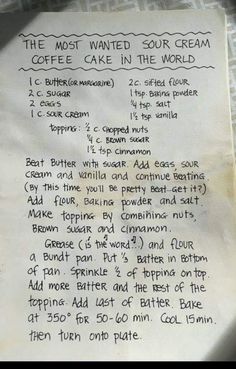 THE MOST WANTED SOUR CREAM
COFFEE CAKE IN THE WORLD
1 c. BUTTER (OR MARGARINE) 2 c. SIFTED FLOUR
2 c. SUGAR 1 tsp. BAKING POWDER
2 EGGS ¼ tsp. SALT
1 c. SOUR CREAM 1½ tsp. VANILLA
TOPPING: ½ c. CHOPPED NUTS
¼ c. BROWN SUGAR
1½ tsp. CINNAMON
BEAT BUTTER WITH SUGAR. ADD EGGS, SOUR
CREAM AND VANILLA AND CONTINUE BEATING.
(BY THIS TIME YOU'LL BE PRETTY BEAT - GET IT?)
ADD FLOUR, BAKING POWDER AND SALT.
MAKE TOPPING BY COMBINING NUTS,
BROWN SUGAR AND CINNAMON.
GREASE (IS THE WORD..) AND FLOUR
A BUNDT PAN. PUT ⅓ BATTER IN BOTTOM
OF PAN. SPRINKLE ½ OF TOPPING ON TOP.
ADD MORE BATTER AND THE REST OF THE
TOPPING. ADD LAST OF BATTER. BAKE
AT 350° FOR 50-60 MIN. COOL 15 MIN.
THEN TURN ONTO PLATE.